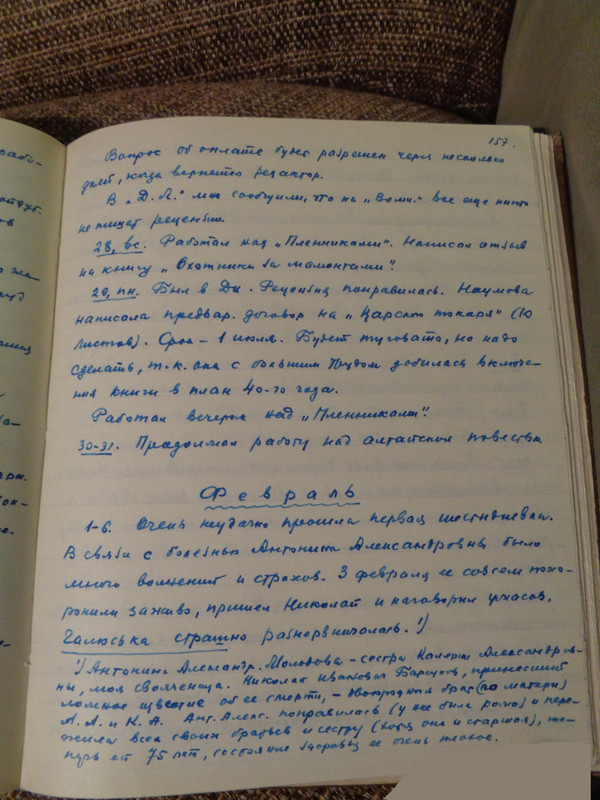 рабо-
157.
Вопрос об оплате будет разрешен через несколько
дней, когда вернется редактор.
В „Д. Л." мне сообщили, что на „Волш." все еще никто
не пишет рецензии.
28, вс. Работал над „Пленниками". Написал отзыв
на книгу „Охотники за мамонтами".
29, пн. Был в Ди. Рецензия понравилась. Наумова
написала предвар. договор на „Царского токаря" (10
листов). Срок – 1 июля. Будет туговато, но надо
сделать, т.к. она с большим трудом добилась включе-
ния книги в план 40-го года.
Работал вечером над „Пленниками".
30-31. Продолжал работу над алтайской повестью
Февраль
1-6. Очень неудачно прошла первая шестидневка.
В связи с болезнью Антонины Александровны было
много волнений и страхов. 3 февраля ее совсем похо-
ронили заживо, пришел Николай и наговорил ужасов.
Галюська страшно разнервничалась. ¹)
¹) Антонина Александр. – сестра Калерии Александров-
ны, моя свояченица. Николай Иванович принесший
ложное известие об ее смерти, – двоюродный брат (по матери)
А. А. и К. А. Ант. Алекс. поправилась (у нее была рожа) и пере-
жила всех своих братьев и сестру (хотя она и старшая), те-
перь ей 75 лет, состояние здоровья ее очень плохое.